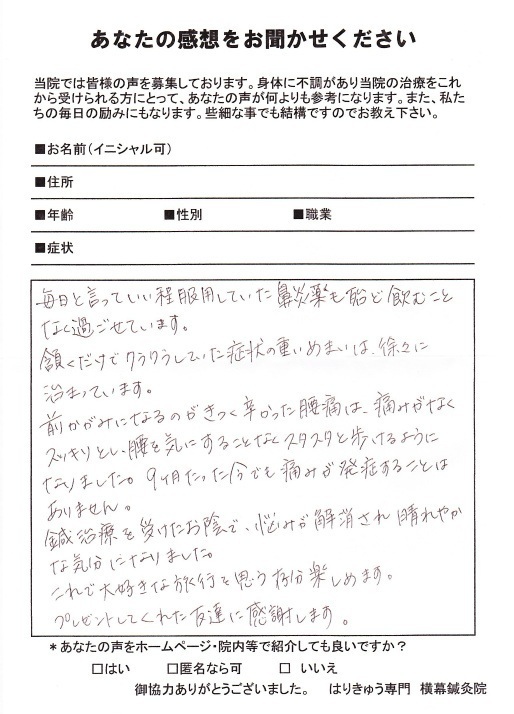 あなたの感想をお聞かせください
当院では皆様の声を募集しております。身体に不調があり当院の治療をこれ
から受けられる方にとって、あなたの声が何よりも参考になります。また、私た
ちの毎日の励みにもなります。些細な事でも結構ですのでお教え下さい。
■お名前(イニシャル可)
■住所
■年齢 ■性別 ■職業
■症状
毎日と言っていい程服用していた鼻炎薬も殆ど飲むこと
なく過ごせています。
頷くだけでクラクラしていた症状の重いめまいは、徐々に
治まっています。
前かがみになるのがきつく辛かった腰痛は、痛みがなく
スッキリとし、腰を気にすることなくスタスタと歩けるように
なりました。9ヶ月たった今でも痛みが発症することは
ありません。
鍼治療を受けたお陰で、悩みが解消され晴れやか
な気分になりました。
これで大好きな旅行を思う存分楽しめます。
プレゼントしてくれた友達に感謝します。
*あなたの声をホームページ・院内等で紹介しても良いですか?
□はい □匿名なら可 □ いいえ
御協力ありがとうございました。 はりきゅう専門 横幕鍼灸院